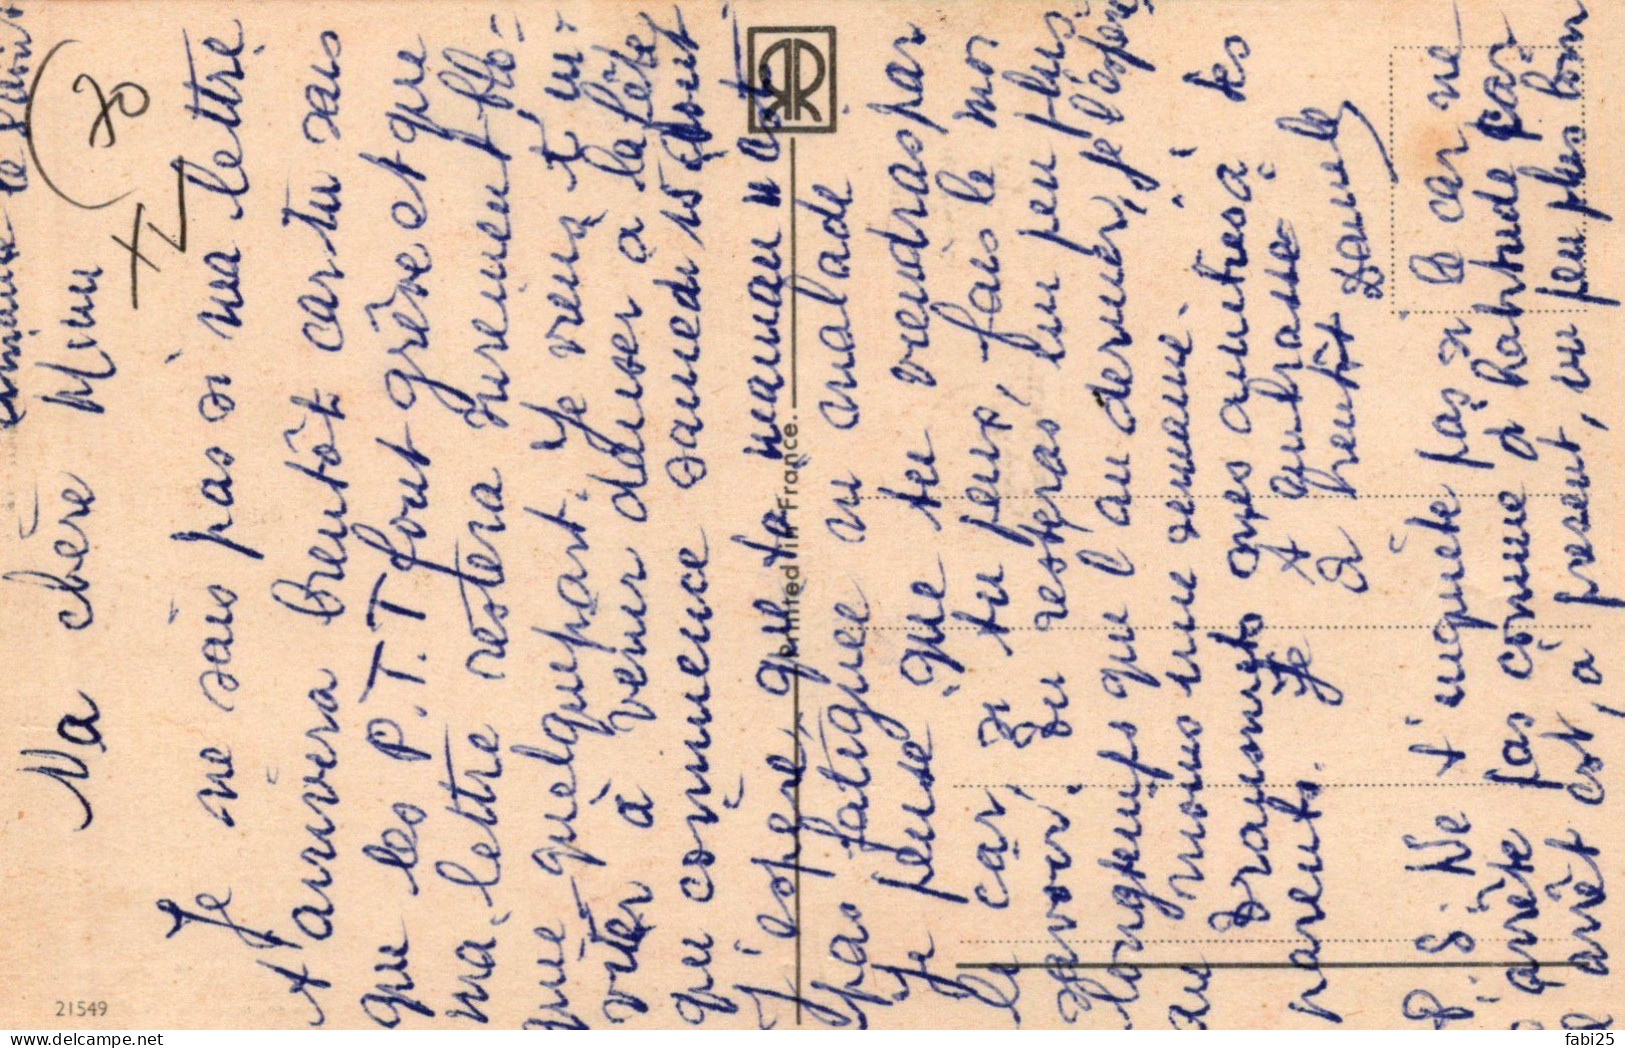 Ma chère Mimi
Je ne sais pas si ma lettre
t'arrivera bientôt car tu sais
que les P.T.T font grève et que
ma lettre restera surement
quelquepart. Je viens t'in-
viter à venir danser à la fête
qui commence samedi 15 août
J'espère, que ta maman n'est
pas fatiguée ni malade
Je pense que tu viendras par
le car, si tu peux, fais le moi
savoir. Tu resteras un peu plus
longtemps que l'an dernier, je l'espère
au moins une semaine.
Transmets mes amitiés à tes
parents. Je t'embrasse
à bientôt Danièle
P.S. Ne t'inquiète pas si le car ne
s'arrête pas comme d'habitude car
l'arrêt est, à présent, un peu plus loin
70
TL
Printed in France.
21549
delcampe.net
fabi25